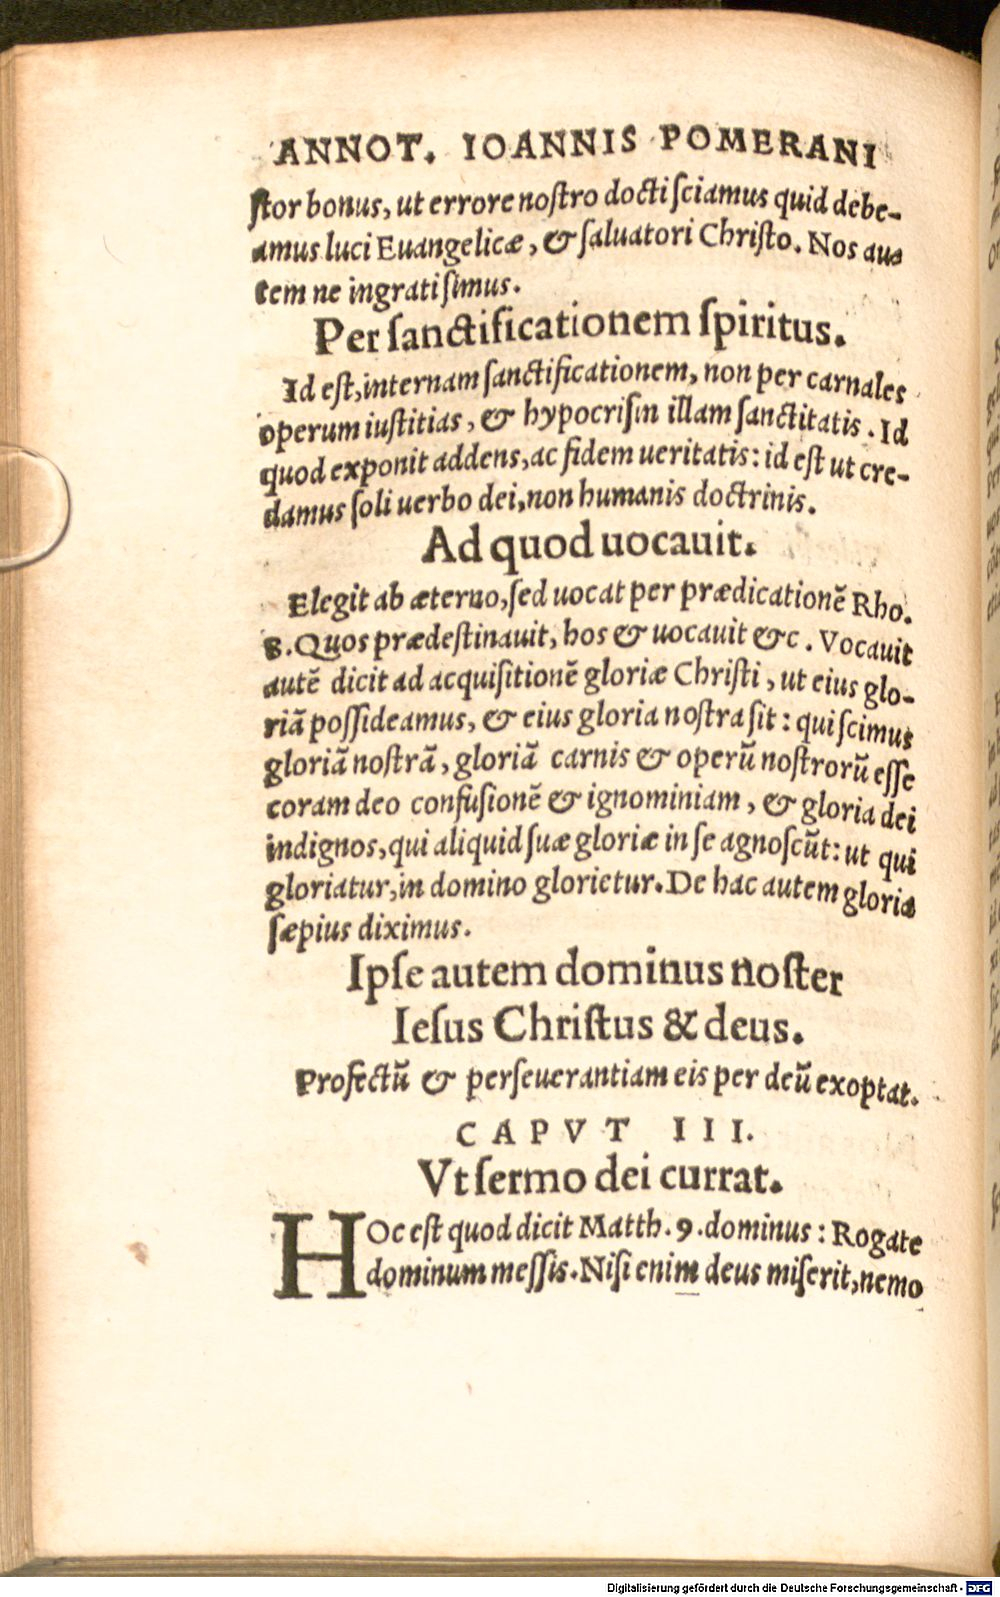 ANNOT. IOANNIS POMERANI
ſtor bonus, ut errore noſtro docti ſciamus quid debe-
amus luci Euangelicæ, & ſaluatori Chriſto. Nos au-
tem ne ingratiſimus.
Per ſanctificationem ſpiritus.
Id eſt, internam ſanctificationem, non per carnales
operum iuſtitias, & hypocriſin illam ſanctitatis. Id
quod exponit addens, ac fidem ueritatis: id eſt ut cre-
damus ſoli uerbo dei, non humanis doctrinis.
Ad quod uocauit.
Elegit ab æterno, ſed uocat per prædicationē Rho.
8. Quos prædeſtinauit, hos & uocauit &c. Vocauit
autē dicit ad acquiſitionē gloriæ Chriſti, ut eius glo-
riā poſſideamus, & eius gloria noſtra ſit: qui ſcimus
gloriā noſtrā, gloriā carnis & operū noſtrorū eſſe
coram deo confuſionē & ignominiam, & gloria dei
indignos, qui aliquid ſuæ gloriæ in ſe agnoſcūt: ut qui
gloriatur, in domino glorietur. De hac autem gloria
ſæpius diximus.
Ipſe autem dominus noſter
Ieſus Chriſtus & deus.
Profectū & perſeuerantiam eis per deū exoptat.
CAPVT III.
Vt ſermo dei currat.
HOc eſt quod dicit Matth. 9. dominus: Rogate
dominum meſſis. Niſi enim deus miſerit, nemo
Digitalisierung gefördert durch die Deutsche Forschungsgemeinschaft - DFG